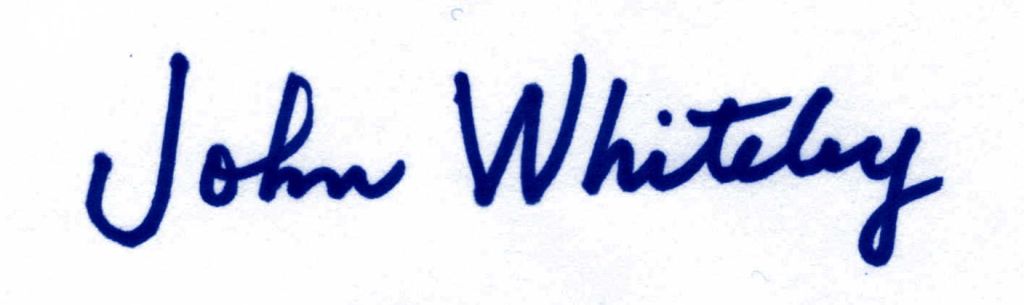 John Whiteley